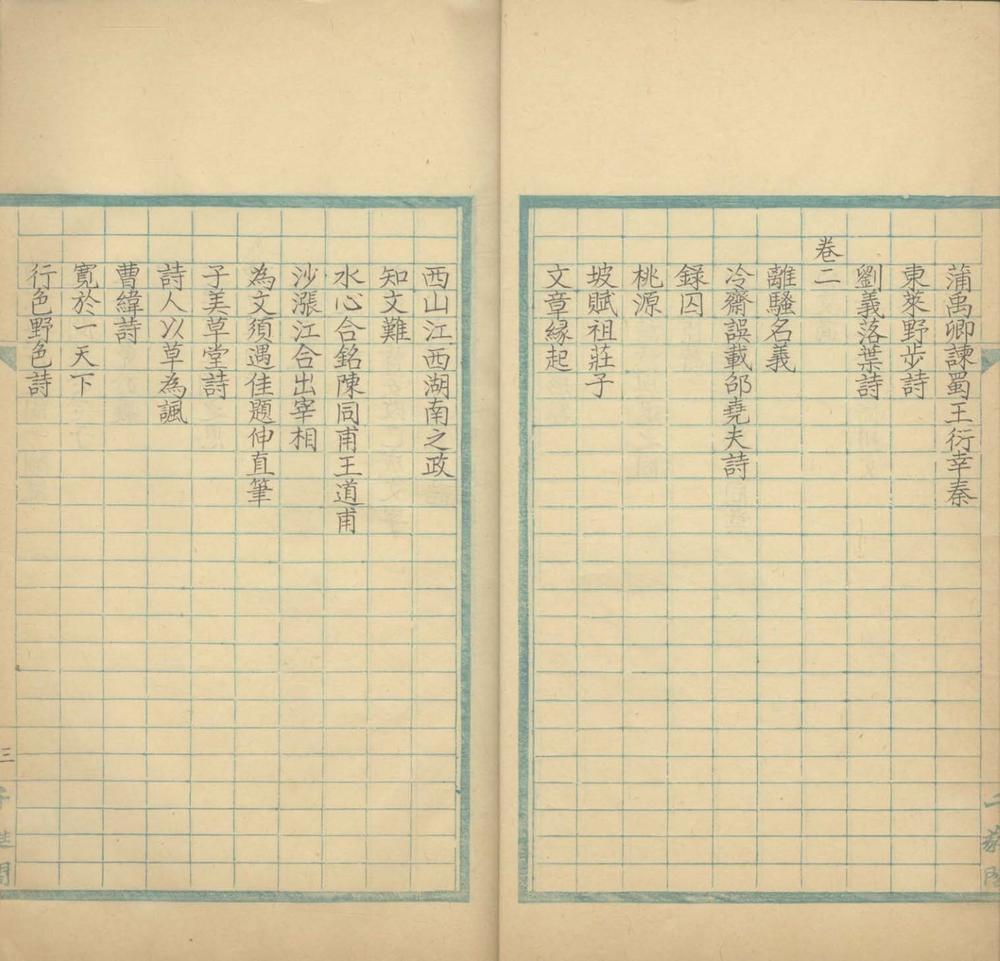 蒲禹卿諫蜀王衍幸秦
東萊野步詩
劉義落葉詩
卷二
離騷名義
冷齋誤載邵堯夫詩
録囚
桃源
坡賦祖莊子
文章縁起
西山江西湖南之政
知文難
水心合銘陳同甫王道甫
沙漲江合出宰相
為文須遇佳題伸直筆
子美草堂詩
詩人以草為諷
曹緯詩
寛於一天下
行色野色詩
三